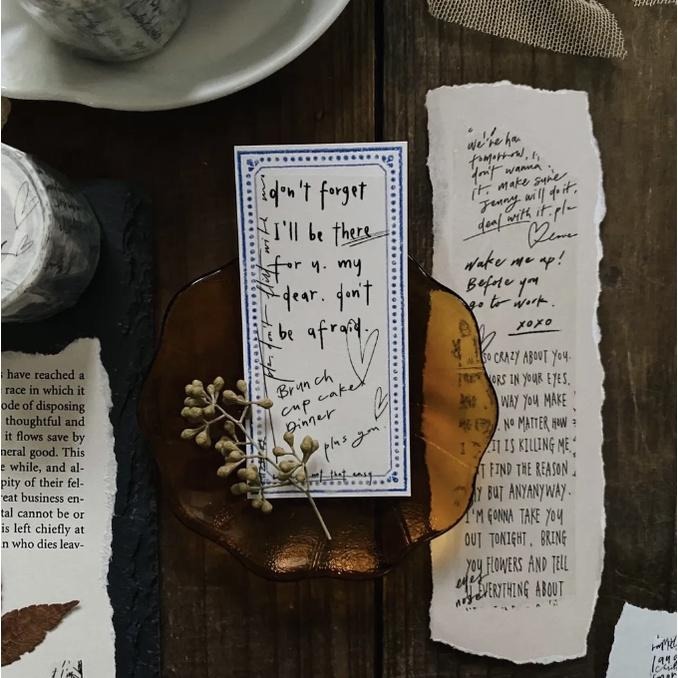 don't forget
I'll be there
for u. my
dear. don't
be afraid.
Brunch
cup cake
Dinner
plus you.
not that easy
we're ha
tomorrow.
don't wanna
it. make sure
Jenny will do it.
deal with it. pls
wake me up!
Before you
go to work.
xoxo
SO CRAZY ABOUT YOU.
ORS IN YOUR EYES.
WAY YOU MAKE
NO MATTER HOW
IT IS KILLING ME
T FIND THE REASON
Y BUT ANYANYWAY.
I'M GONNA TAKE YOU
OUT TONIGHT. BRING
YOU FLOWERS AND TELL
EVERYTHING ABOUT
eyes
nose
s have reached a
race in which it
ode of disposing
thoughtful and
it flows save by
neral good. This
e while, and al-
pity of their fel-
reat business en-
tal cannot be or
is left chiefly at
n who dies leav-